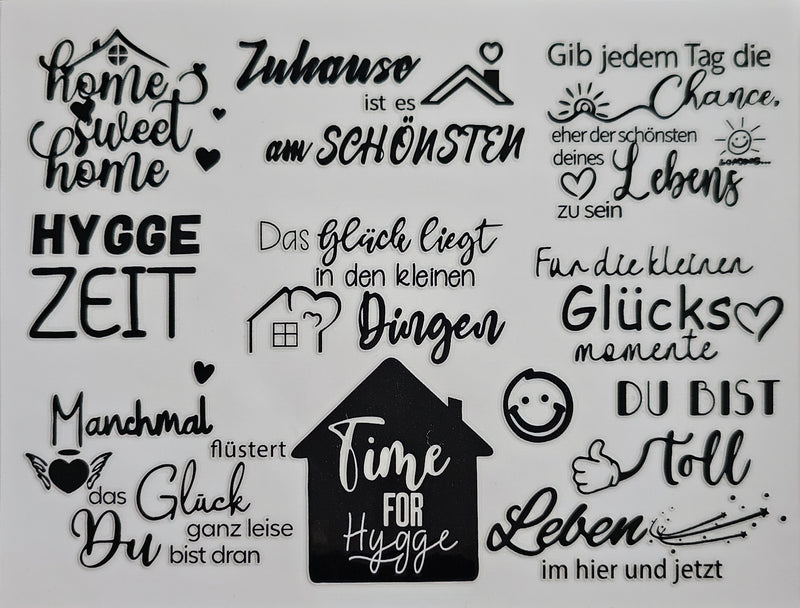 home
sweet
home
Zuhause
ist es
am SCHÖNSTEN
Gib jedem Tag die
Chance,
eher der schönsten
deines
Lebens
zu sein
HYGGE
ZEIT
Das Glück liegt
in den kleinen
Dingen
Für die kleinen
Glücks
momente
Manchmal
flüstert
das Glück
ganz leise
Du bist dran
Time
FOR
Hygge
DU BIST
toll
Leben
im hier und jetzt